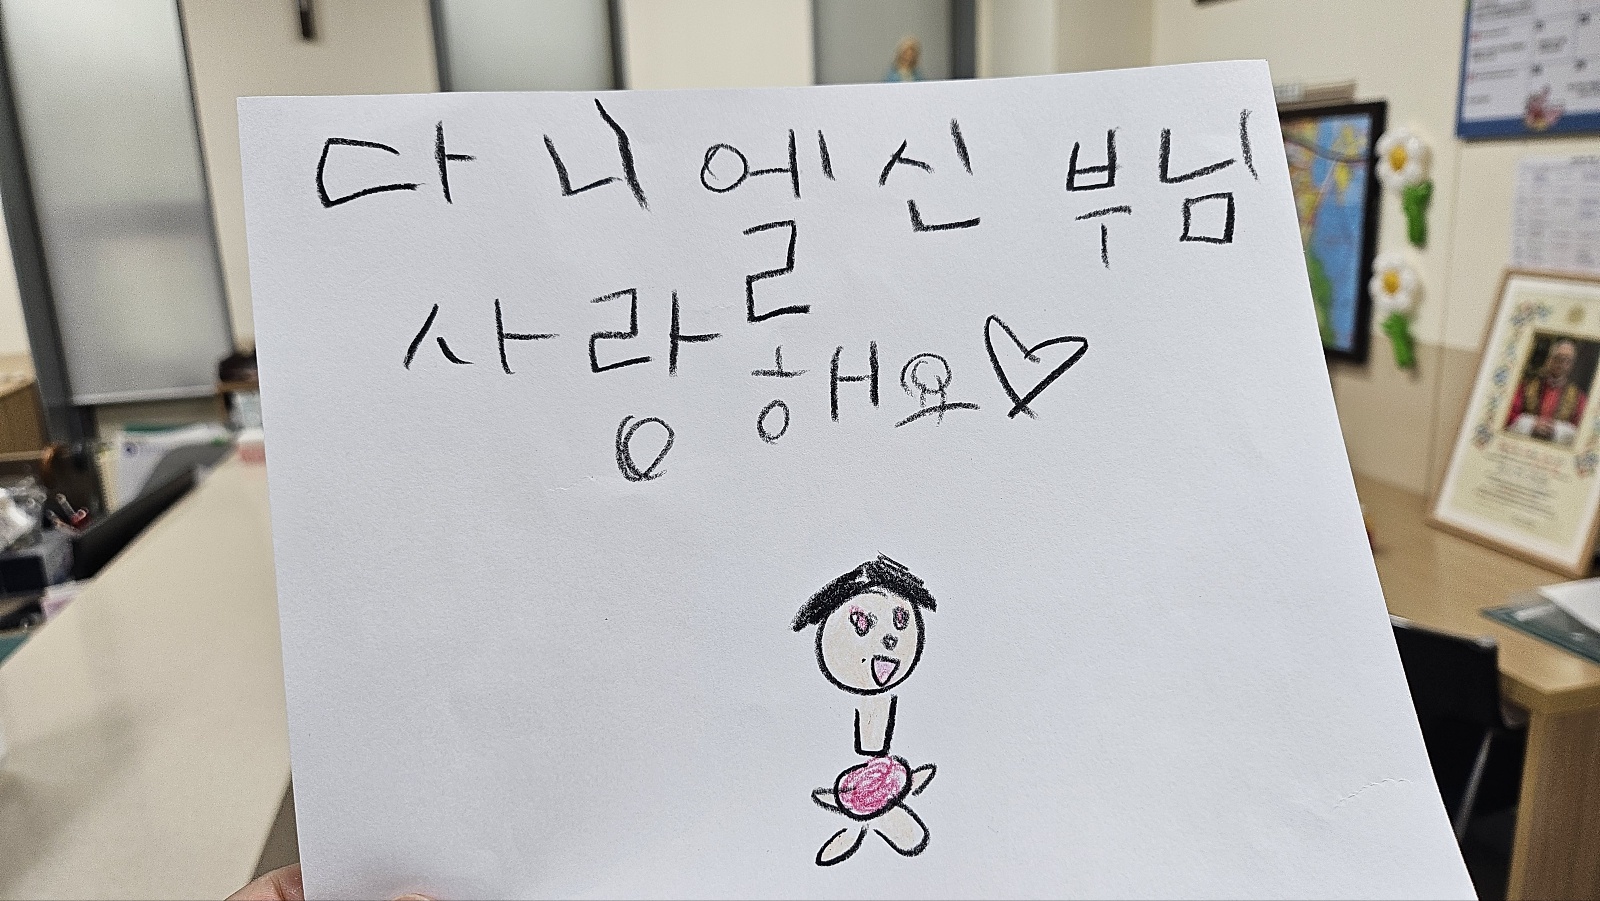 다니엘 신부님
사랑해요♡